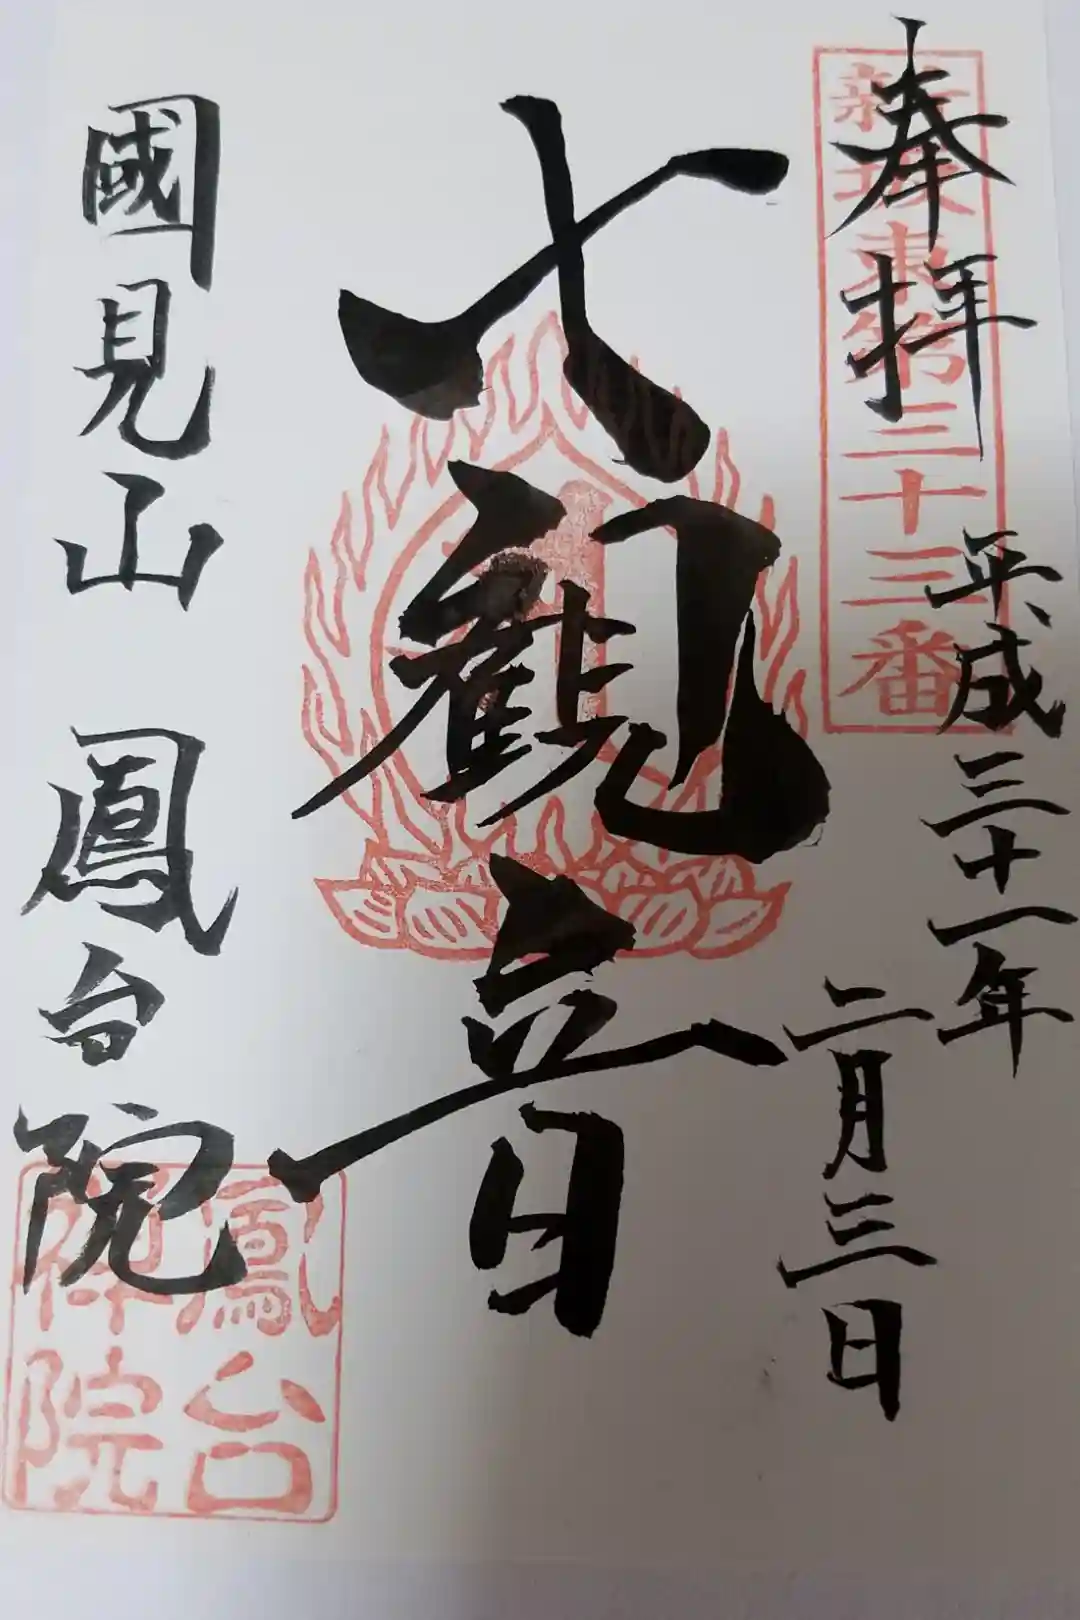 奉拝
新坂東第三十三番
平成三十一年
二月三日
七観音
國見山 鳳台院
鳳台
禅院